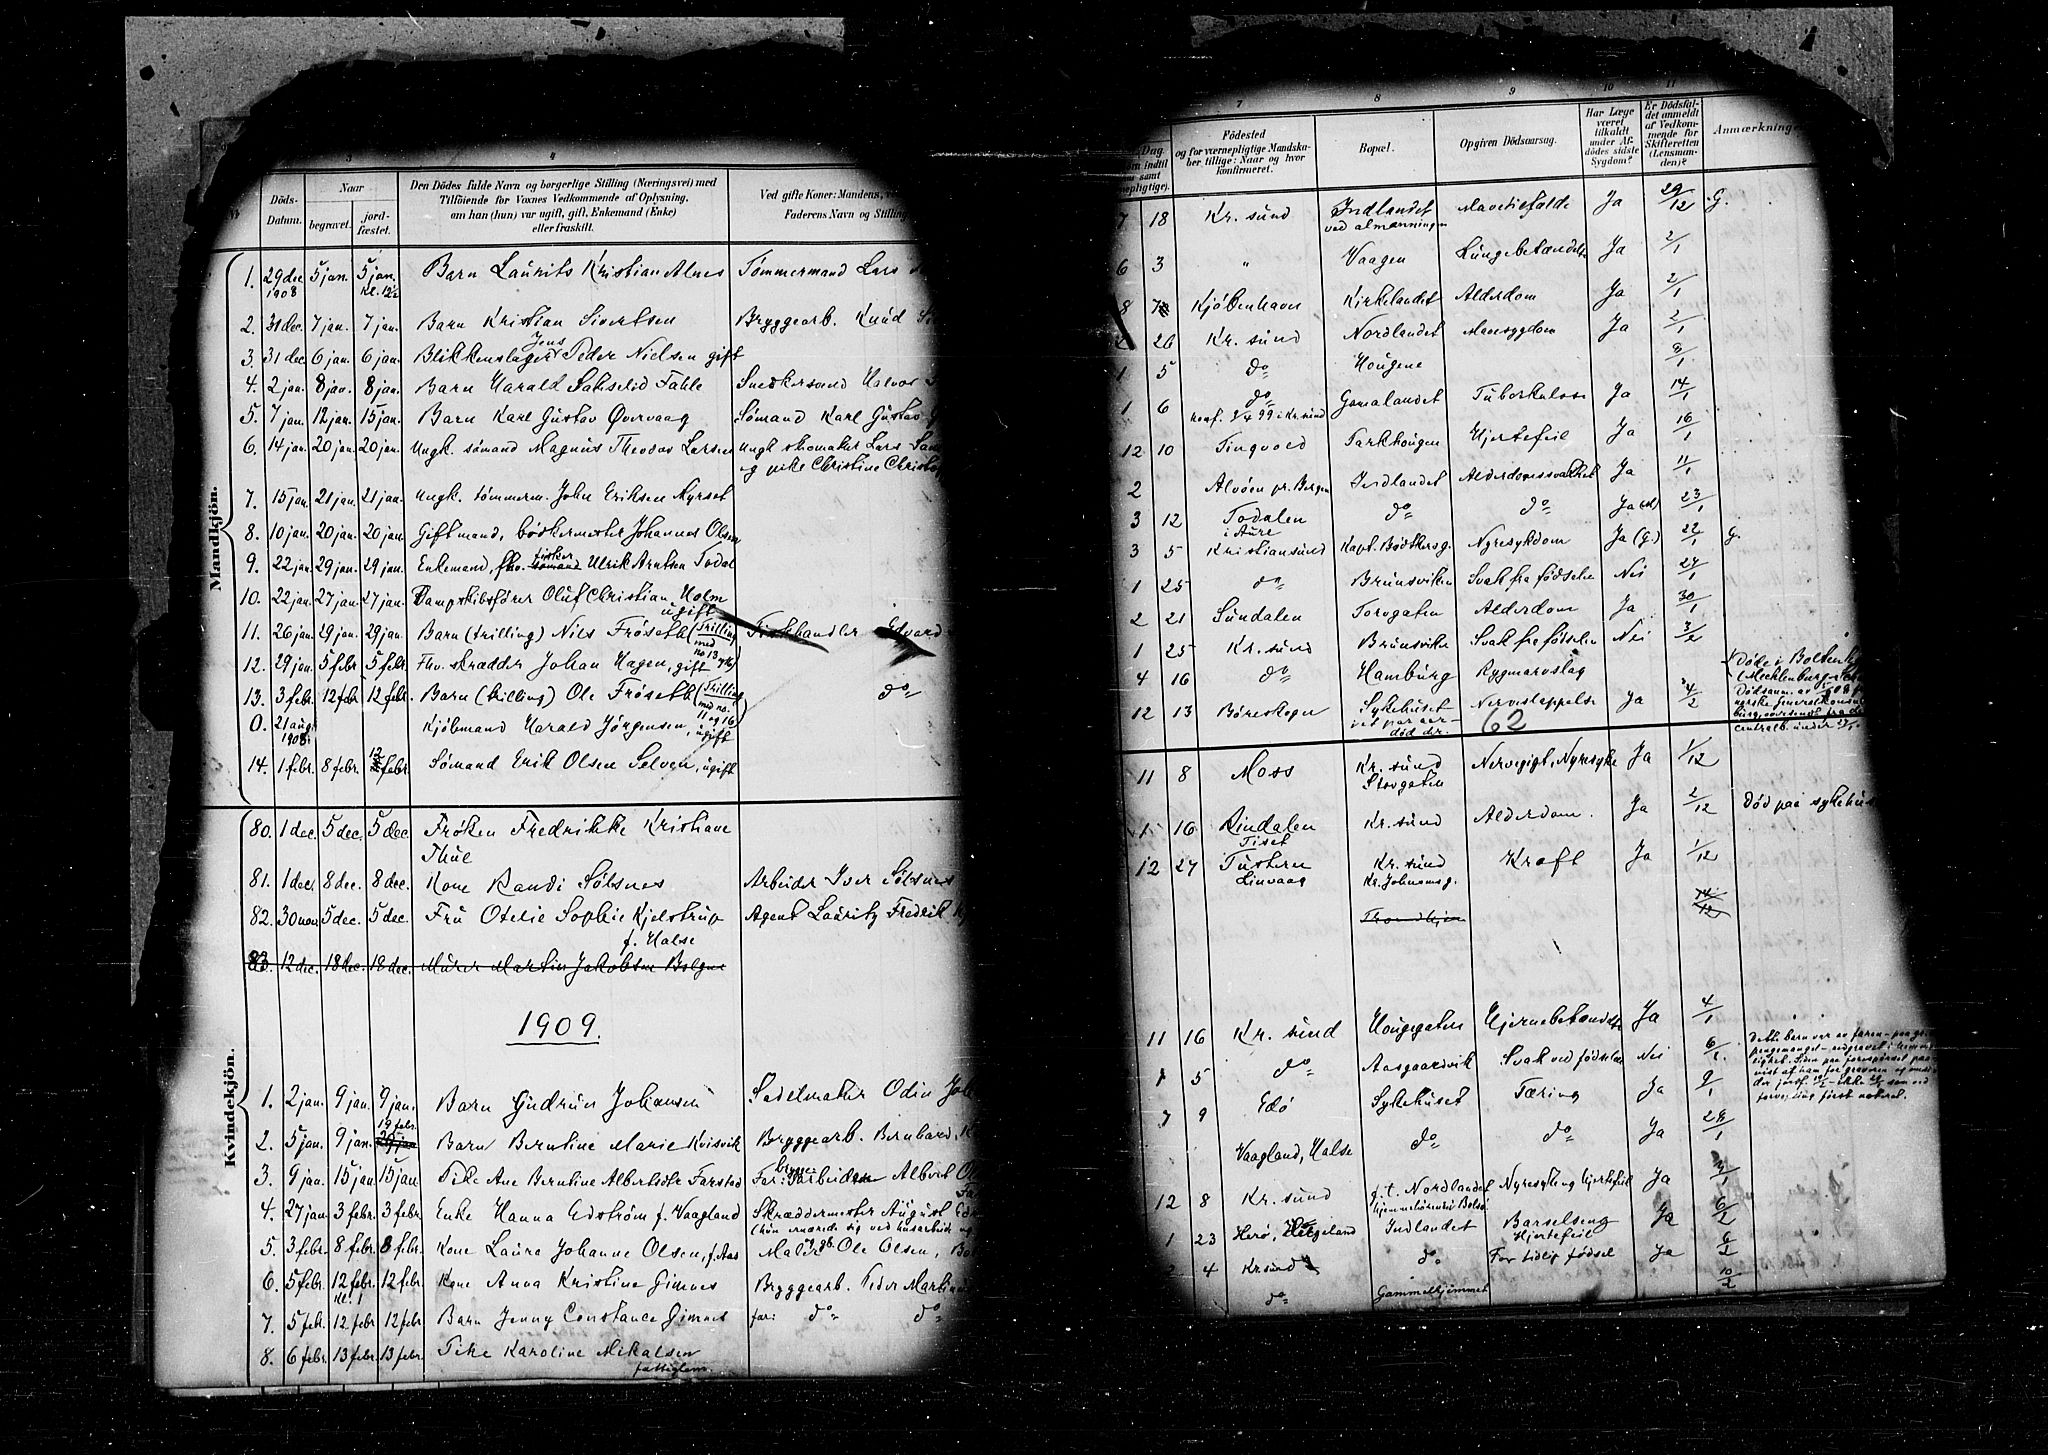 3
4
Döds-
Datum.
Naar
begravet.
jord-
fæstet.
Den Dödes fulde Navn og borgerlige Stilling (Næringsvei) med
Tilföiende for Voxnes Vedkommende af Oplysning,
om han (hun) var ugift, gift, Enkemand (Enke)
eller fraskilt.
Ved gifte Koner: Mandens,
Faderens Navn og Stilling
Mandkjön.
1. 29 dec 1908 5 jan. 5 jan. Kl. 12½ Barn Laurits Kristian Alnes Tömmermand Lars
2. 31 dec. 7 jan. 7 jan. Barn Kristian Sivertsen Bryggearb. Knud
3. 31 dec 6 jan. 6 jan. Blikkenslager Jens Peder Nielsen gift
4. 2 jan. 8 jan. 8 jan. Barn Harald Fahle Snedkersvend Halvor
5. 7 jan. 12 jan. 15 jan. Barn Karl Gustav Øvervaag Sømand Karl Gustav
6. 14 jan. 20 jan. 20 jan. Ungk. sømand Magnus Theodor Larsen Ungk skomaker Lars
og pike Christine
7. 15 jan. 21 jan. 21 jan. Ungk. tömmerm. John Eriksen Myrset
8. 10 jan. 20 jan. 20 jan. Gift mand, bødkermester Johannes Olsen
9. 22 jan. 29 jan. 29 jan. Enkemand, fhv. fisker sømand Ulrik Arntsen Todal
10. 22 jan. 27 jan. 27 jan. Dampskibsfører Oluf Christian Holm
ugift
11. 26 jan. 29 jan. 29 jan. Barn (trilling) Nils Frøseth (Trilling med no 13 Fiskhandler Edvard
12. 29 jan. 5 febr 5 febr. Fhv. skrædder Johan Hagen, gift
13. 3 febr. 12 febr 12 febr. Barn (trilling) Ole Frøseth (Trilling med no. 11 og 16) do
0. 21 aug. 1908 Kjøbmand Harald Jörgensen, ugift
14. 1 febr. 8 febr. 12 febr. Sömand Erik Olsen Selven, ugift
Kvindekjön.
80. 1 dec. 5 dec. 5 dec. Frøken Fredrikke Kristiane
Thue
81. 1 dec. 8 dec. 8 dec. Kone Randi Sølsnes Arbeider Iver Sølsnes
82. 30 nov 5 dec. 5 dec. Fru Otelie Sophie Kjelstrup Agent Lauritz Fredrik
f. Halse
83. 12 dec. 18 dec. 18 dec. Murer Martin Jakobsen Bolgne
1909.
1. 2 jan. 9 jan. 9 jan. Barn Gudrun Johansen Sadelmaker Odin
2. 5 jan. 9 jan. 19 febr. Barn Berntine Marie Kvisvik Bryggearb. Bernhard
3. 9 jan. 15 jan. 15 jan Pike Ane Berntine Albertsdtr Farstad Far: brygge arbeider Albert
4. 27 jan. 3 febr. 3 febr. Enke Hanna Edström f. Vaagland Skræddermester August
(hun ernærede sig ved husarbeide
5. 3 febr. 8 febr. 8 febr. Kone Laura Johanne Olsen, f. Aas Maler Ole Olsen,
6. 5 febr. 12 febr. Kl. 1 12 febr. Kone Anna Kristine Gimnes Bryggearb. Peder
7. 5 febr. 12 febr 12 febr Barn Jenny Constance Gimnes far: do do
8. 6 febr. 13 febr. 13 febr. Pike Karoline Mikalsen
fattiglem
7
8
9
10
11
Dag
Födested
og for værnepligtige Mandska-
ber tillige: Naar og hvor
konfirmeret.
Bopæl.
Opgiven Dödsaarsag.
Har Læge
været
tilkaldt
under Af-
dödes sidste
Sygdom?
Er Dödsfal-
det anmeldt
af Vedkom-
mende for
Skifteretten
(Lensman-
den)?
Anmærkninge
7 18 Kr. sund Indlandet ved almenningen Mavetilfælde Ja 29/12 G.
6 3 " Vaagen Lungebetændelse Ja 2/1
8 Kjøbenhavn Kirkelandet Alderdom Ja 2/1
26 Kr. sund Nordlandet Mavesygdom Ja 2/1
1 5 do Hougene 8/1
1 6 do Gomalandet Tuberkulose Ja 14/1
konf. 99 i Kr.sund
12 10 Tingvold Tarkhougen Hjertefeil Ja 16/1
2 Alvöen pr. Bergen Indlandet Alderdomssvakhet Ja 11/1
3 12 Todalen i Aure do do Ja 23/1
3 5 Kristiansund Kapt. Bødkersg. Nyresykdom Ja (G.) 22/1 G.
1 25 do Brunsviken Svak fra fødselen Nei 27/1
2 21 Sundalen Torvgaten Alderdom Ja 30/1
1 25 Kr. sund Brunsviken Svak fra fødselen Nei 3/2
4 16 do Hamburg Rygmarvslag Døde i
(Mecklenburg
12 13 Sykehuset Nerveslappelse Ja 4/2
62
11 8 Moss Kr. sund Storgaten Nervegigt, Nyresyke Ja 1/12
16 Rindalen Kr. sund Alderdom. Ja 2/12 Død paa sykehus
Tiset
12 27 Tustern Linvaag Kr. sund Kr. Johnsens g. Kræft Ja 1/12
Trondhjem 14/12
11 16 Kr. sund Hougegaten Hjernebetændelse Ja 4/1
1 5 do Aasgaardvik Svak ved fødselen Nei 6/1 Dette barn var av faren
7 9 Edö Sykehuset Tæring Ja 9/1
Vaagland, Halse do do Ja 28/1
12 8 Kr. sund p.t. Nordlandet hjemmehørende Bolsø Nyresyke og hjertefeil Ja
1 23 Herø, Helgeland Indlandet Barselseng Hjertefeil Ja 6/2
2 4 Kr. sund do For tidlig fødsel Ja 6/2
do Gammelhjemmet 10/2